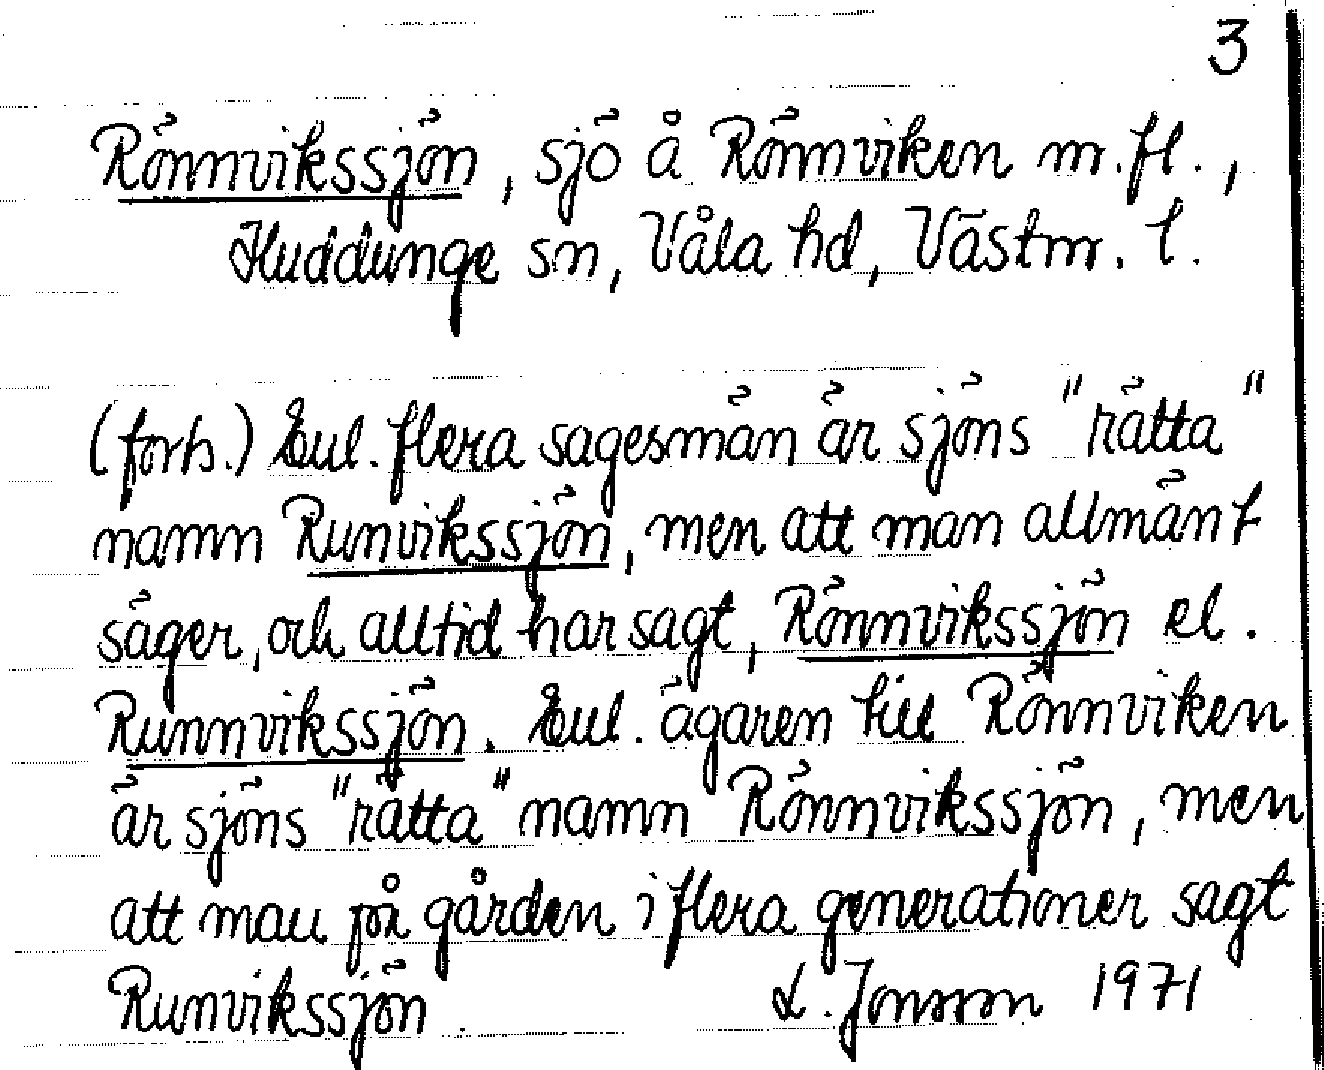 3
Rönnvikssjön, sjö å Rönnviken m.fl.,
Huddunge sn, Våla hd, Västm. l.
(forts.) Enl. flera sagesmän är sjöns "rätta"
namn Runvikssjön, men att man allmänt
säger, och alltid har sagt, Rönnvikssjön el.
Runnvikssjön. Enl. ägaren till Rönnviken
är sjöns "rätta" namn Rönnvikssjön, men
att man på gården i flera generationer sagt
Runvikssjön. L. Jonsson 1971